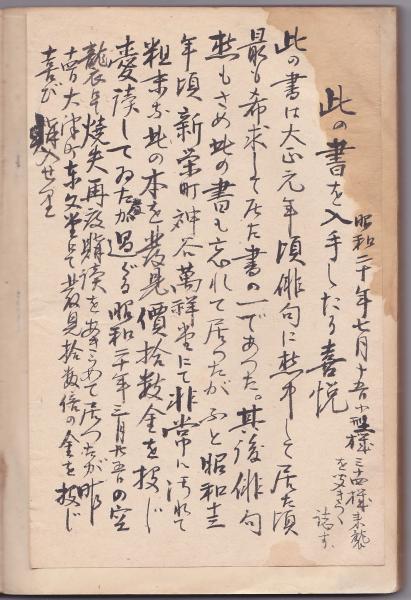 此の書を入手したる喜悦
昭和二十年七月十五日小型様
三十四機来襲
をききつゝ
誌す
此の書は大正元年頃俳句に熱中して居た頃
最も希求して居た書の一であつた。其後俳句
熱もさめ此の書も忘れて居つたがふと昭和
年頃新栄町神谷萬祥堂にて非常に汚れて
粗末な此の本を発見價拾数金を投じ
愛読してゐたが過ぐる昭和二十年三月 の空
襲早焼失再度購読をあきらめて居つたが
大津町東文堂にて発見拾数倍の金を投じ
喜び購入せり